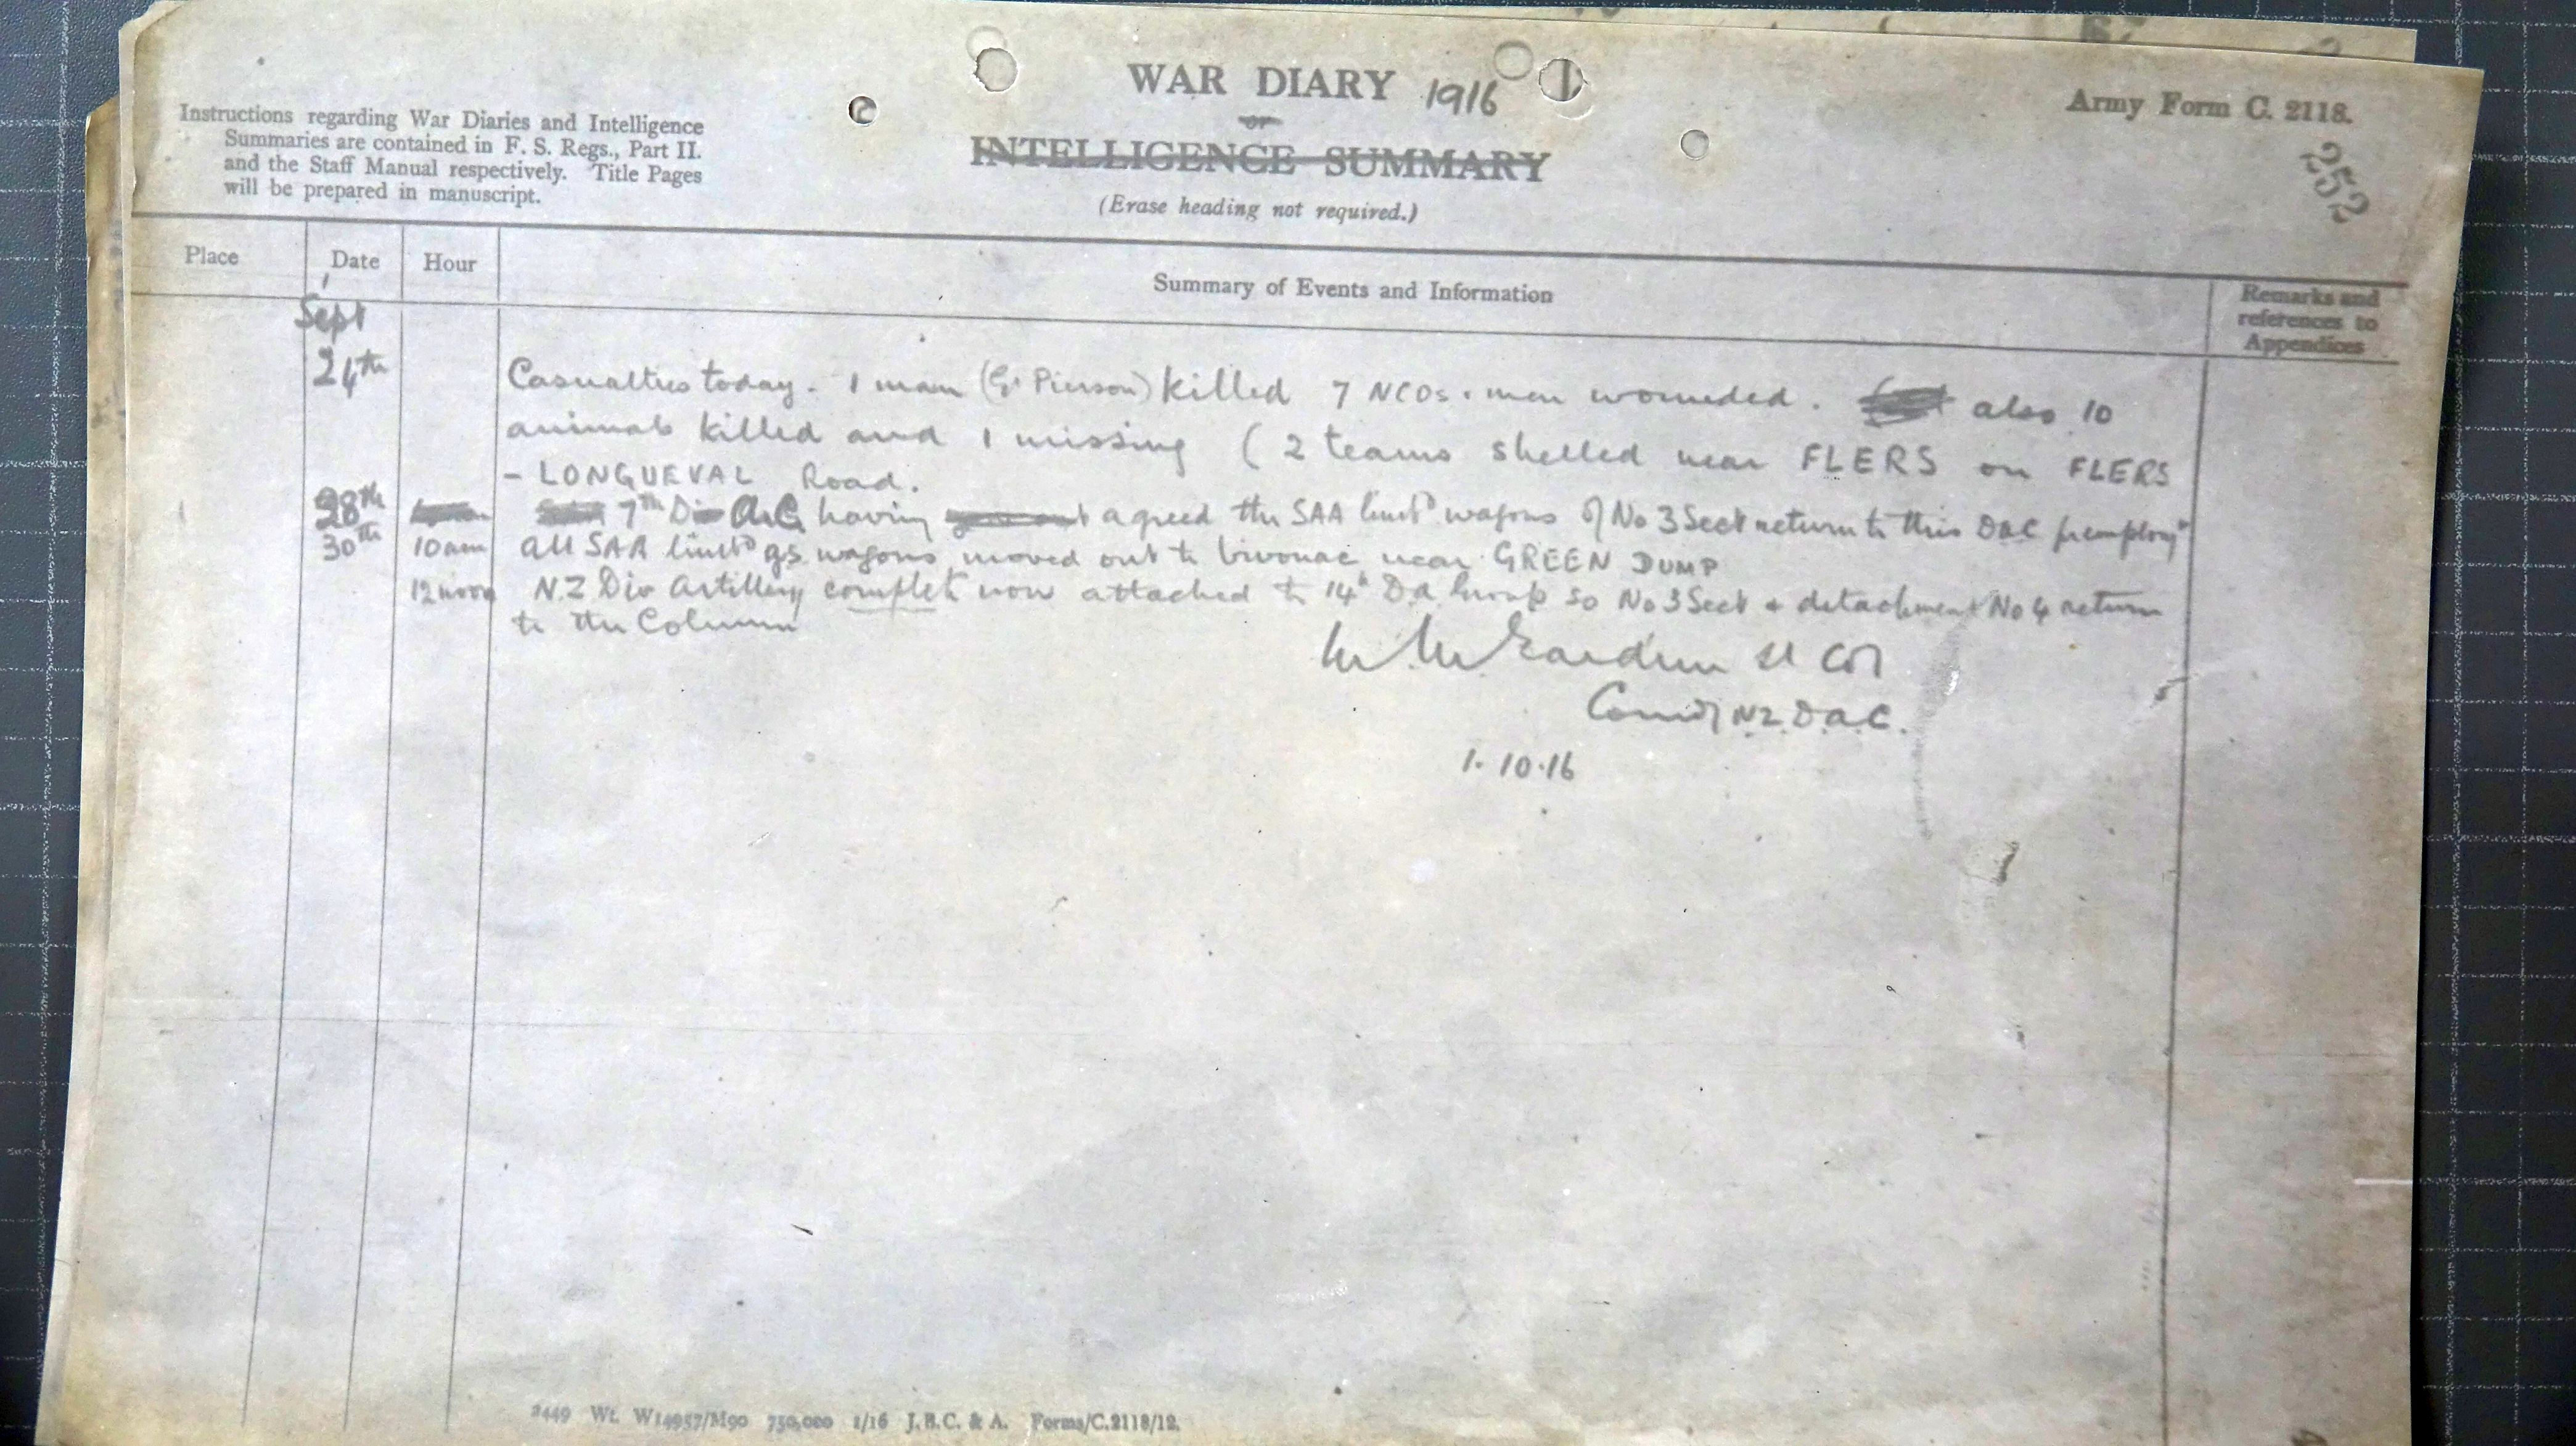 WAR DIARY 1916
or
INTELLIGENCE SUMMARY
(Erase heading not required.)
Army Form C. 2118.
252
Instructions regarding War Diaries and Intelligence
Summaries are contained in F. S. Regs., Part II.
and the Staff Manual respectively. Title Pages
will be prepared in manuscript.
Place Date Hour Summary of Events and Information Remarks and
references to
Appendices
Sept
24th Casualties today. 1 man (Gr Pierson) killed 7 NCOs & men wounded. also 10
animals killed and 1 missing (2 teams shelled near FLERS on FLERS
- LONGUEVAL Road.
28th 7th D AC having agreed the SAA limbd wagons of No 3 Sect return to this DAC
30th 10am All SAA limbd gs wagons moved out to bivouac near GREEN DUMP
12 noon N.Z Div Artillery complete now attached to 14th Da Group so No 3 Sect & detachment No 4 return
to the Column
Lt Col
Comdg N.Z. D.A.C.
1.10.16
2449 Wt. W14957/M90 750,000 1/16 J.B.C. & A. Forms/C.2118/12.